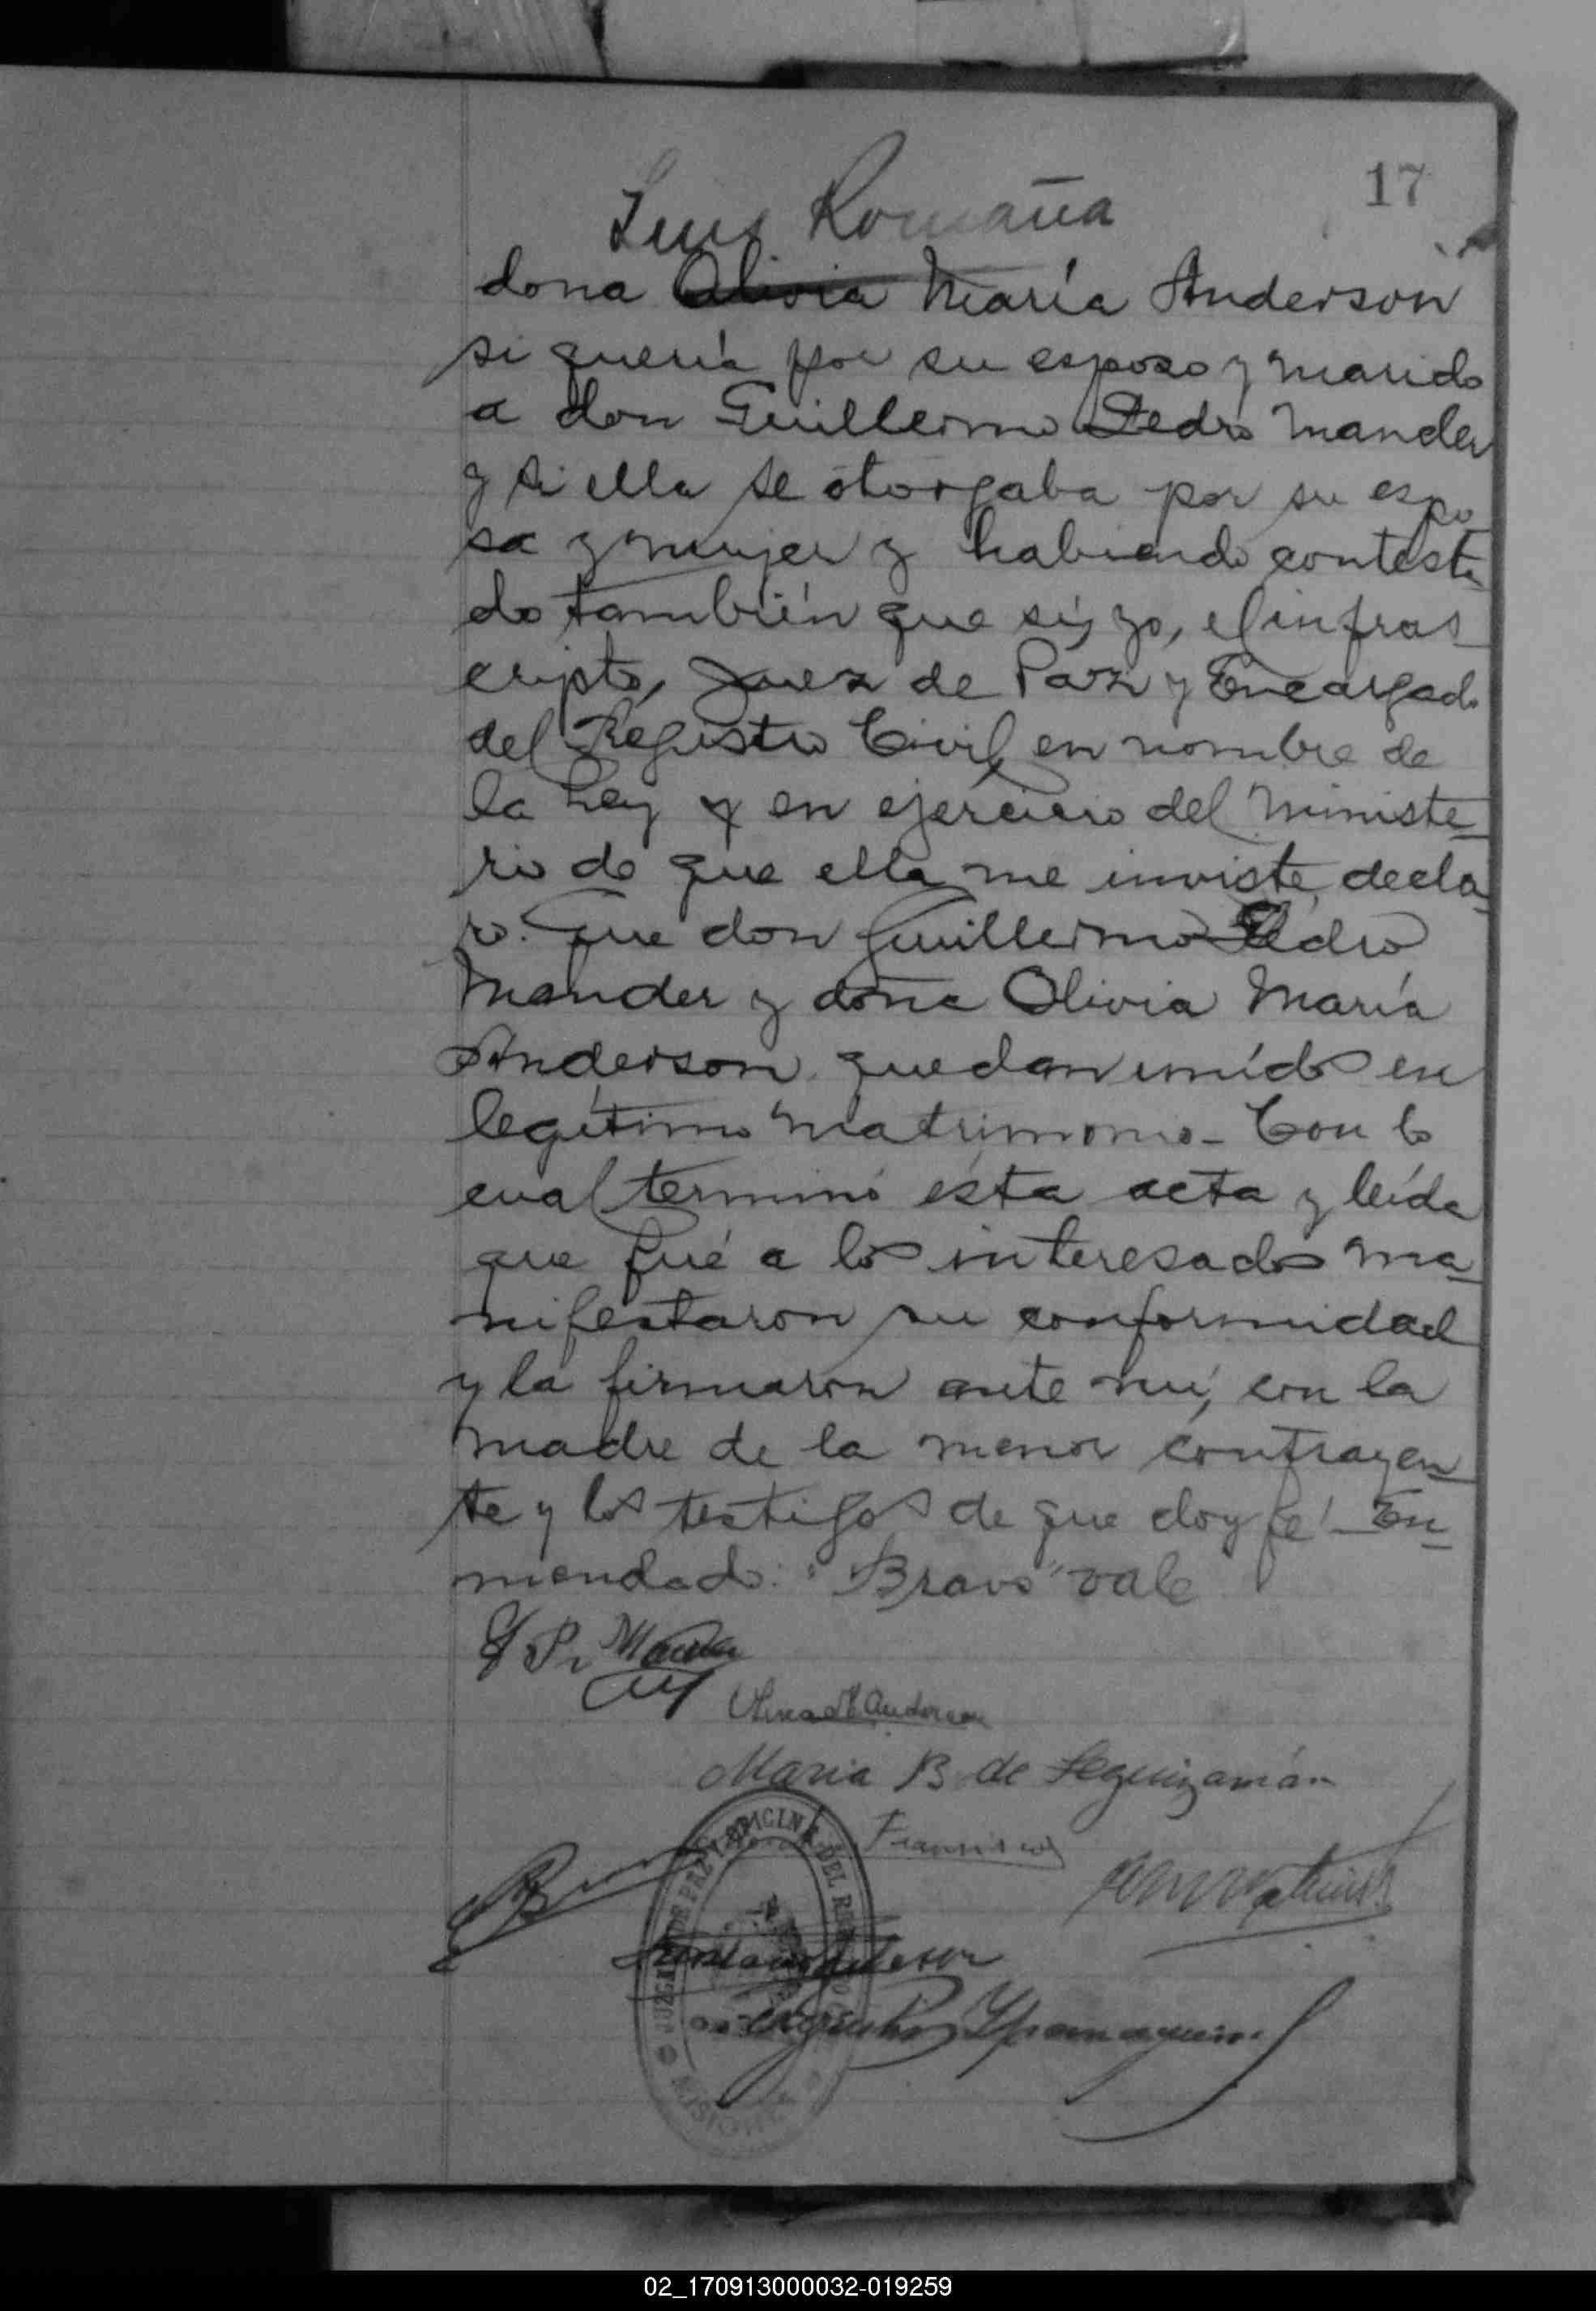 17
Luis Romaña
dona Olivia María Anderson
si quería por su esposo y marido
a don Guillermo Pedro Mander
y si ella se otorgaba por su espo
sa y mujer y habiendo contesta
do también que sí, yo, el infras
cripto, Juez de Paz y Encargado
del Registro Civil, en nombre de
la Ley y en ejercicio del Ministe
rio de que ella me inviste, decla
ro: Que don Guillermo Pedro
Mander y doña Olivia María
Anderson quedan unidos en
legítimo matrimonio - Con lo
cual terminó ésta acta y leída
que fué a los interesados ma
nifestaron su conformidad
y la firmaron ante mí, con la
madre de la menor contrayen
te y los testigos de que doy fé - En
mendado: "Bravo" vale
G. P. Mander
Anderson
Maria B de Leguizamón
Francisco
JUZGADO DE PAZ Y OFICINA DEL
MISIONES
02_170913000032-019259